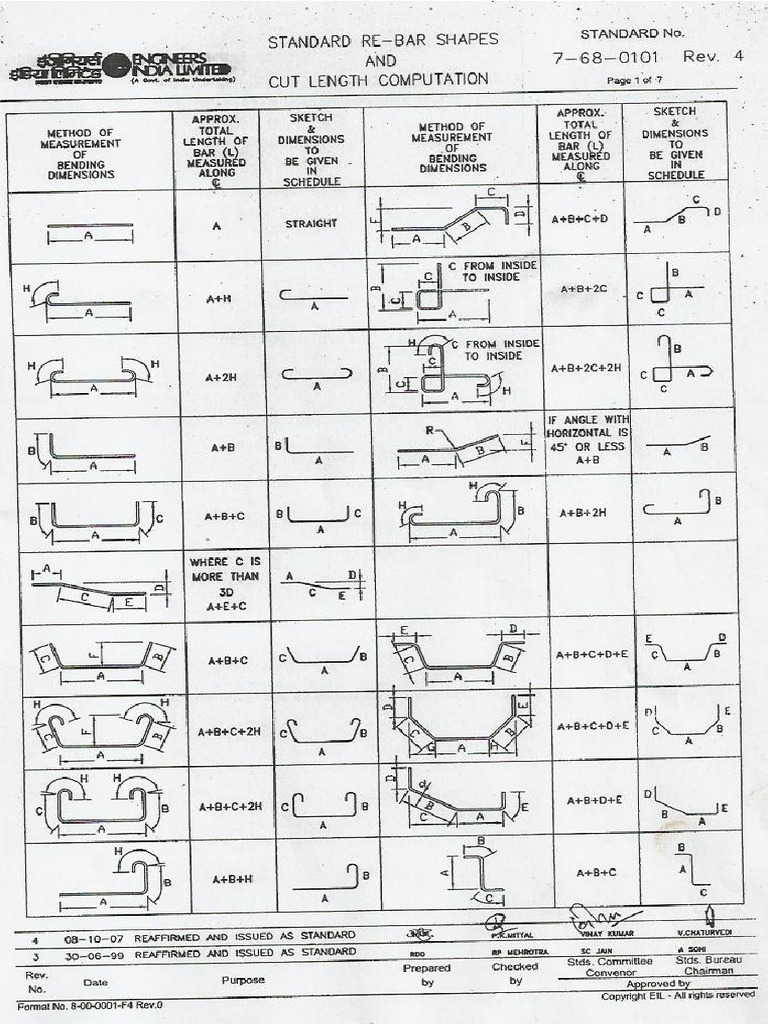 इंजीनियर्स
इंडिया लिमिटेड
ENGINEERS
INDIA LIMITED
(A Govt. of India Undertaking)
STANDARD RE-BAR SHAPES
AND
CUT LENGTH COMPUTATION
STANDARD No.
7-68-0101 Rev. 4
Page 1 of 7
METHOD OF
MEASUREMENT
OF
BENDING
DIMENSIONS
APPROX.
TOTAL
LENGTH OF
BAR (L)
MEASURED
ALONG
℄
SKETCH
&
DIMENSIONS
TO
BE GIVEN
IN
SCHEDULE
METHOD OF
MEASUREMENT
OF
BENDING
DIMENSIONS
APPROX.
TOTAL
LENGTH OF
BAR (L)
MEASURED
ALONG
℄
SKETCH
&
DIMENSIONS
TO
BE GIVEN
IN
SCHEDULE
A
A
STRAIGHT
F A B C D
A+B+C+D
A B C D
H A
A+H
A
B C C A
C FROM INSIDE
TO INSIDE
A+B+2C
B C A C
H A H
A+2H
A
H B C C A H
C FROM INSIDE
TO INSIDE
A+B+2C+2H
B C A C
B A
A+B
B A
R A B F
IF ANGLE WITH
HORIZONTAL IS
45° OR LESS
A+B
A B
B A C
A+B+C
B A C
H A H B
A+B+2H
A B
A C E D
WHERE C IS
MORE THAN
3D
A+E+C
A C D E
C F A B
A+B+C
C A B
E C A B D
A+B+C+D+E
E C A B D
H C F A B H
A+B+C+2H
C A B
D C G A H B E
A+B+C+D+E
D C A B E
C H A H B
A+B+C+2H
C A B
D d B C A E
A+B+D+E
D B A E
H A B
A+B+H
A B
B A C
A+B+C
B A C
4 08-10-07 REAFFIRMED AND ISSUED AS STANDARD P.K.MITTAL VINAY KUMAR V.CHATURVEDI
3 30-06-99 REAFFIRMED AND ISSUED AS STANDARD RDD RP MEHROTRA SC JAIN A SONI
Rev.
No.
Date
Purpose
Prepared
by
Checked
by
Stds. Committee
Convenor
Stds. Bureau
Chairman
Approved by
Format No. 8-00-0001-F4 Rev.0
Copyright EIL - All rights reserved